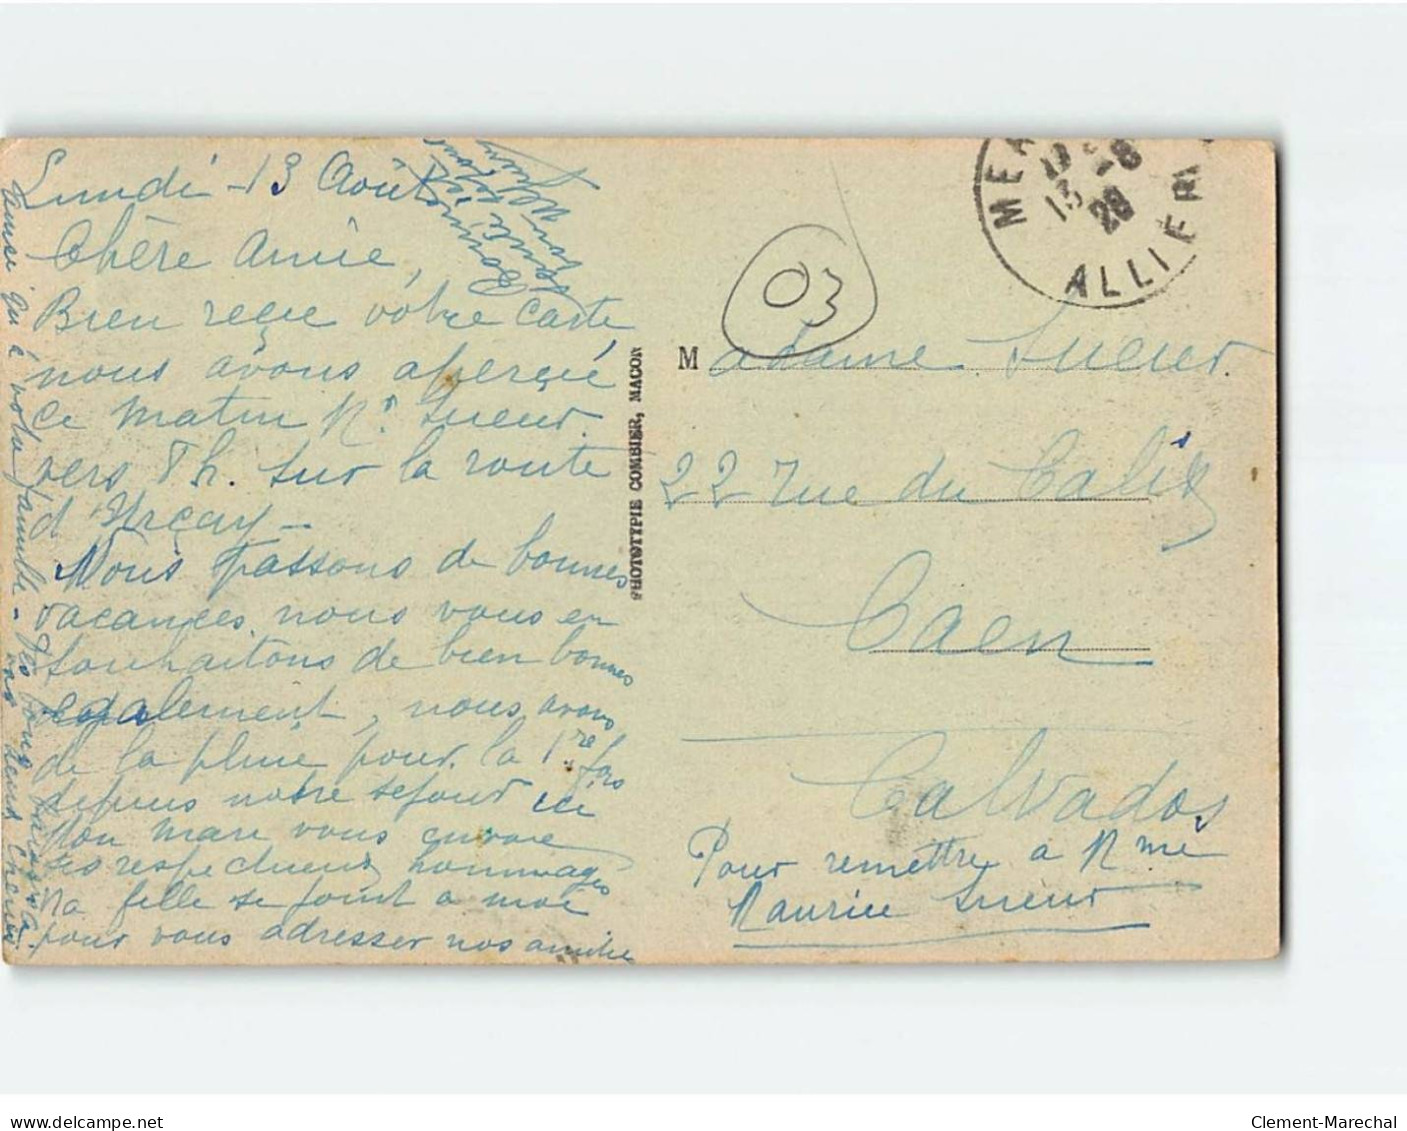 Lundi - 13 Août
Chère Amie,
Bien reçue votre carte
nous avons aperçue
ce matin Mr Sueur
vers 8 h. sur la route
d'Urçay -
Nous passons de bonnes
vacances nous vous en
souhaitons de bien bonnes
également, nous avons
de la pluie pour la 1re fois
depuis notre séjour ici
Mon mari vous envoie
ses respectueux hommages
Ma fille se joint a moi
pour vous adresser nos amitiés
ainsi qu'à votre famille -
PHOTOTYPIE COMBIER, MACON
03
ALLIER
13 -8
28
Madame Sueur
22 rue du
Caen
Calvados
Pour remettre à Mme
Maurice Sueur
www.delcampe.net
Clement-Marechal